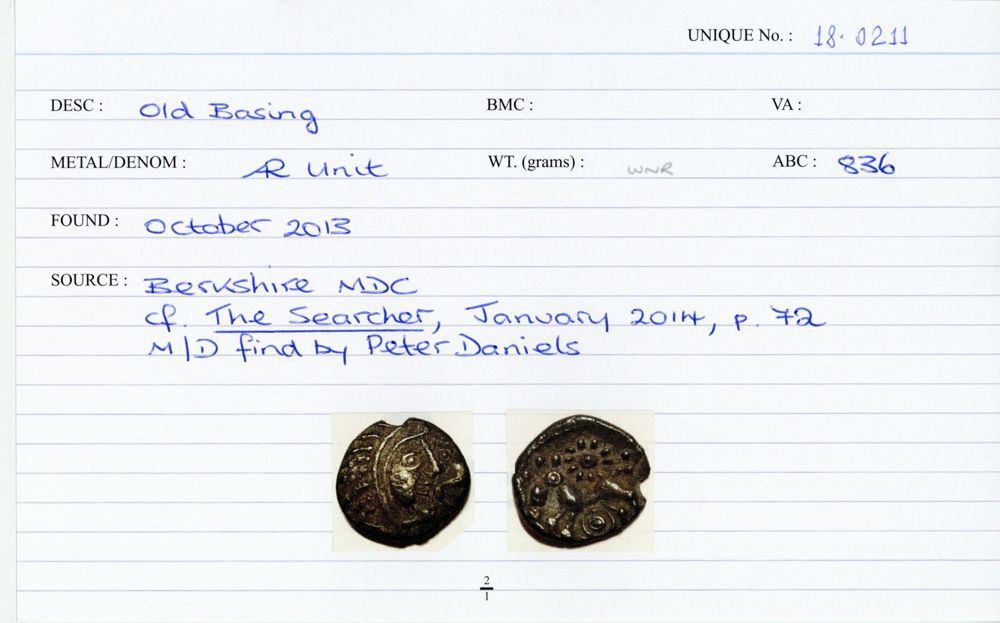 UNIQUE No. : 18.0211
DESC : Old Basing BMC : VA :
METAL/DENOM : AR Unit WT. (grams) : WNR ABC : 836
FOUND : October 2013
SOURCE : Berkshire MDC
cf. The Searcher, January 2014, p. 72
M/D find by Peter Daniels
2
1